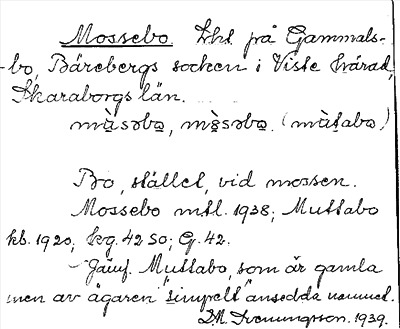 Mossebo. kbs. på Gammals-
-bo, Bärebergs socken i Viste härad,
Skaraborgs län.
Bo, stället, vid mossen.
Mossebo mtl. 1938; Muttabo
kb. 1920; kg. 42 SO; G. 42.
- Jämf. Muttabo, som är gamla
men av ägaren "simpelt" ansedda namnet.
D.M. Svenungsson. 1939.